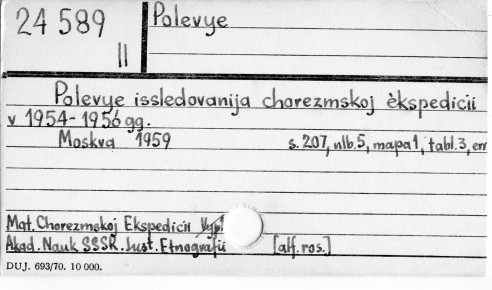 24 589
II
Polevye
Polevye issledovanija chorezmskoj èkspedicii
v 1954-1956 gg.
Moskva 1959 s. 207, nlb. 5, mapa 1, tabl. 3, err
Mat. Chorezmskoj Ekspedicii Vyp.
Akad. Nauk SSSR. Inst. Etnografii [alf. ros.]
DUJ. 693/70. 10 000.